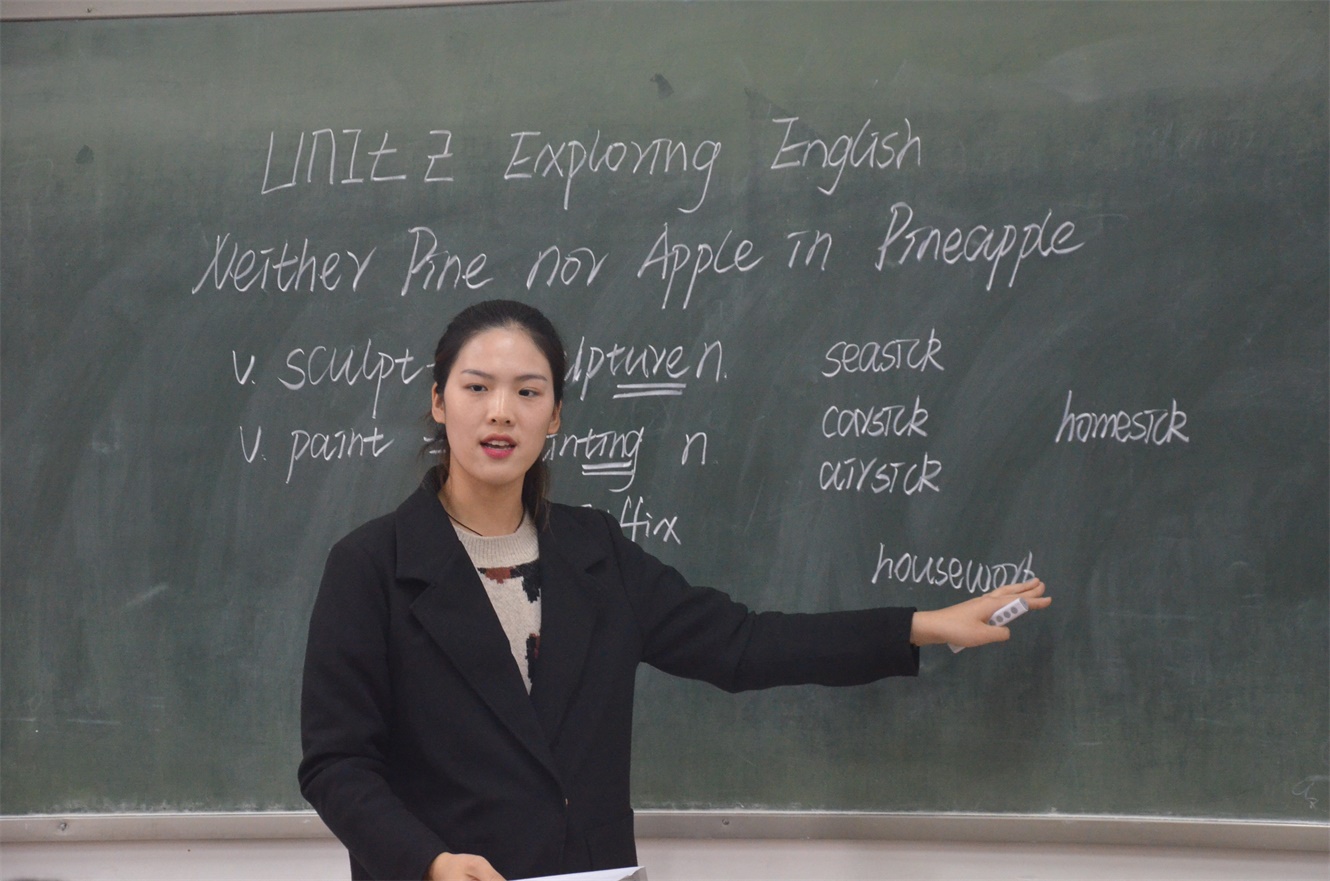 UNIt 2 Exploring English
Neither Pine nor Apple in Pineapple
v. sculpt- lpture n.
v. paint inting n
ffix
seasick
carsick
airsick
homesick
housework